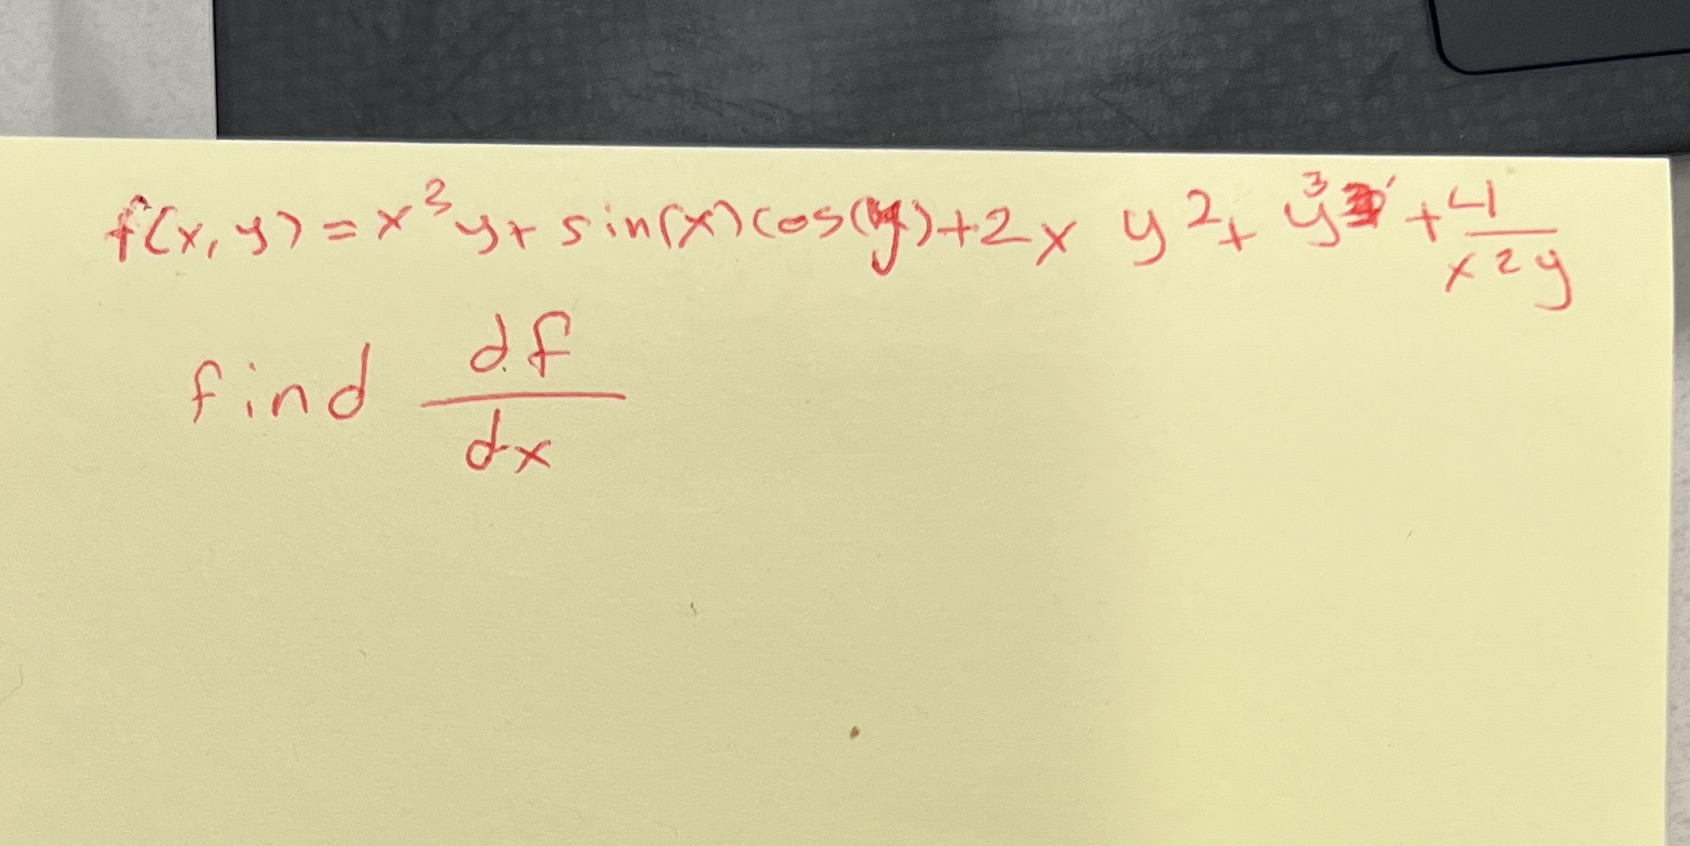 f(x, y) = x³y + sin(x)cos(y) + 2x y² + y³ + 4/(x²y)
find df/dx